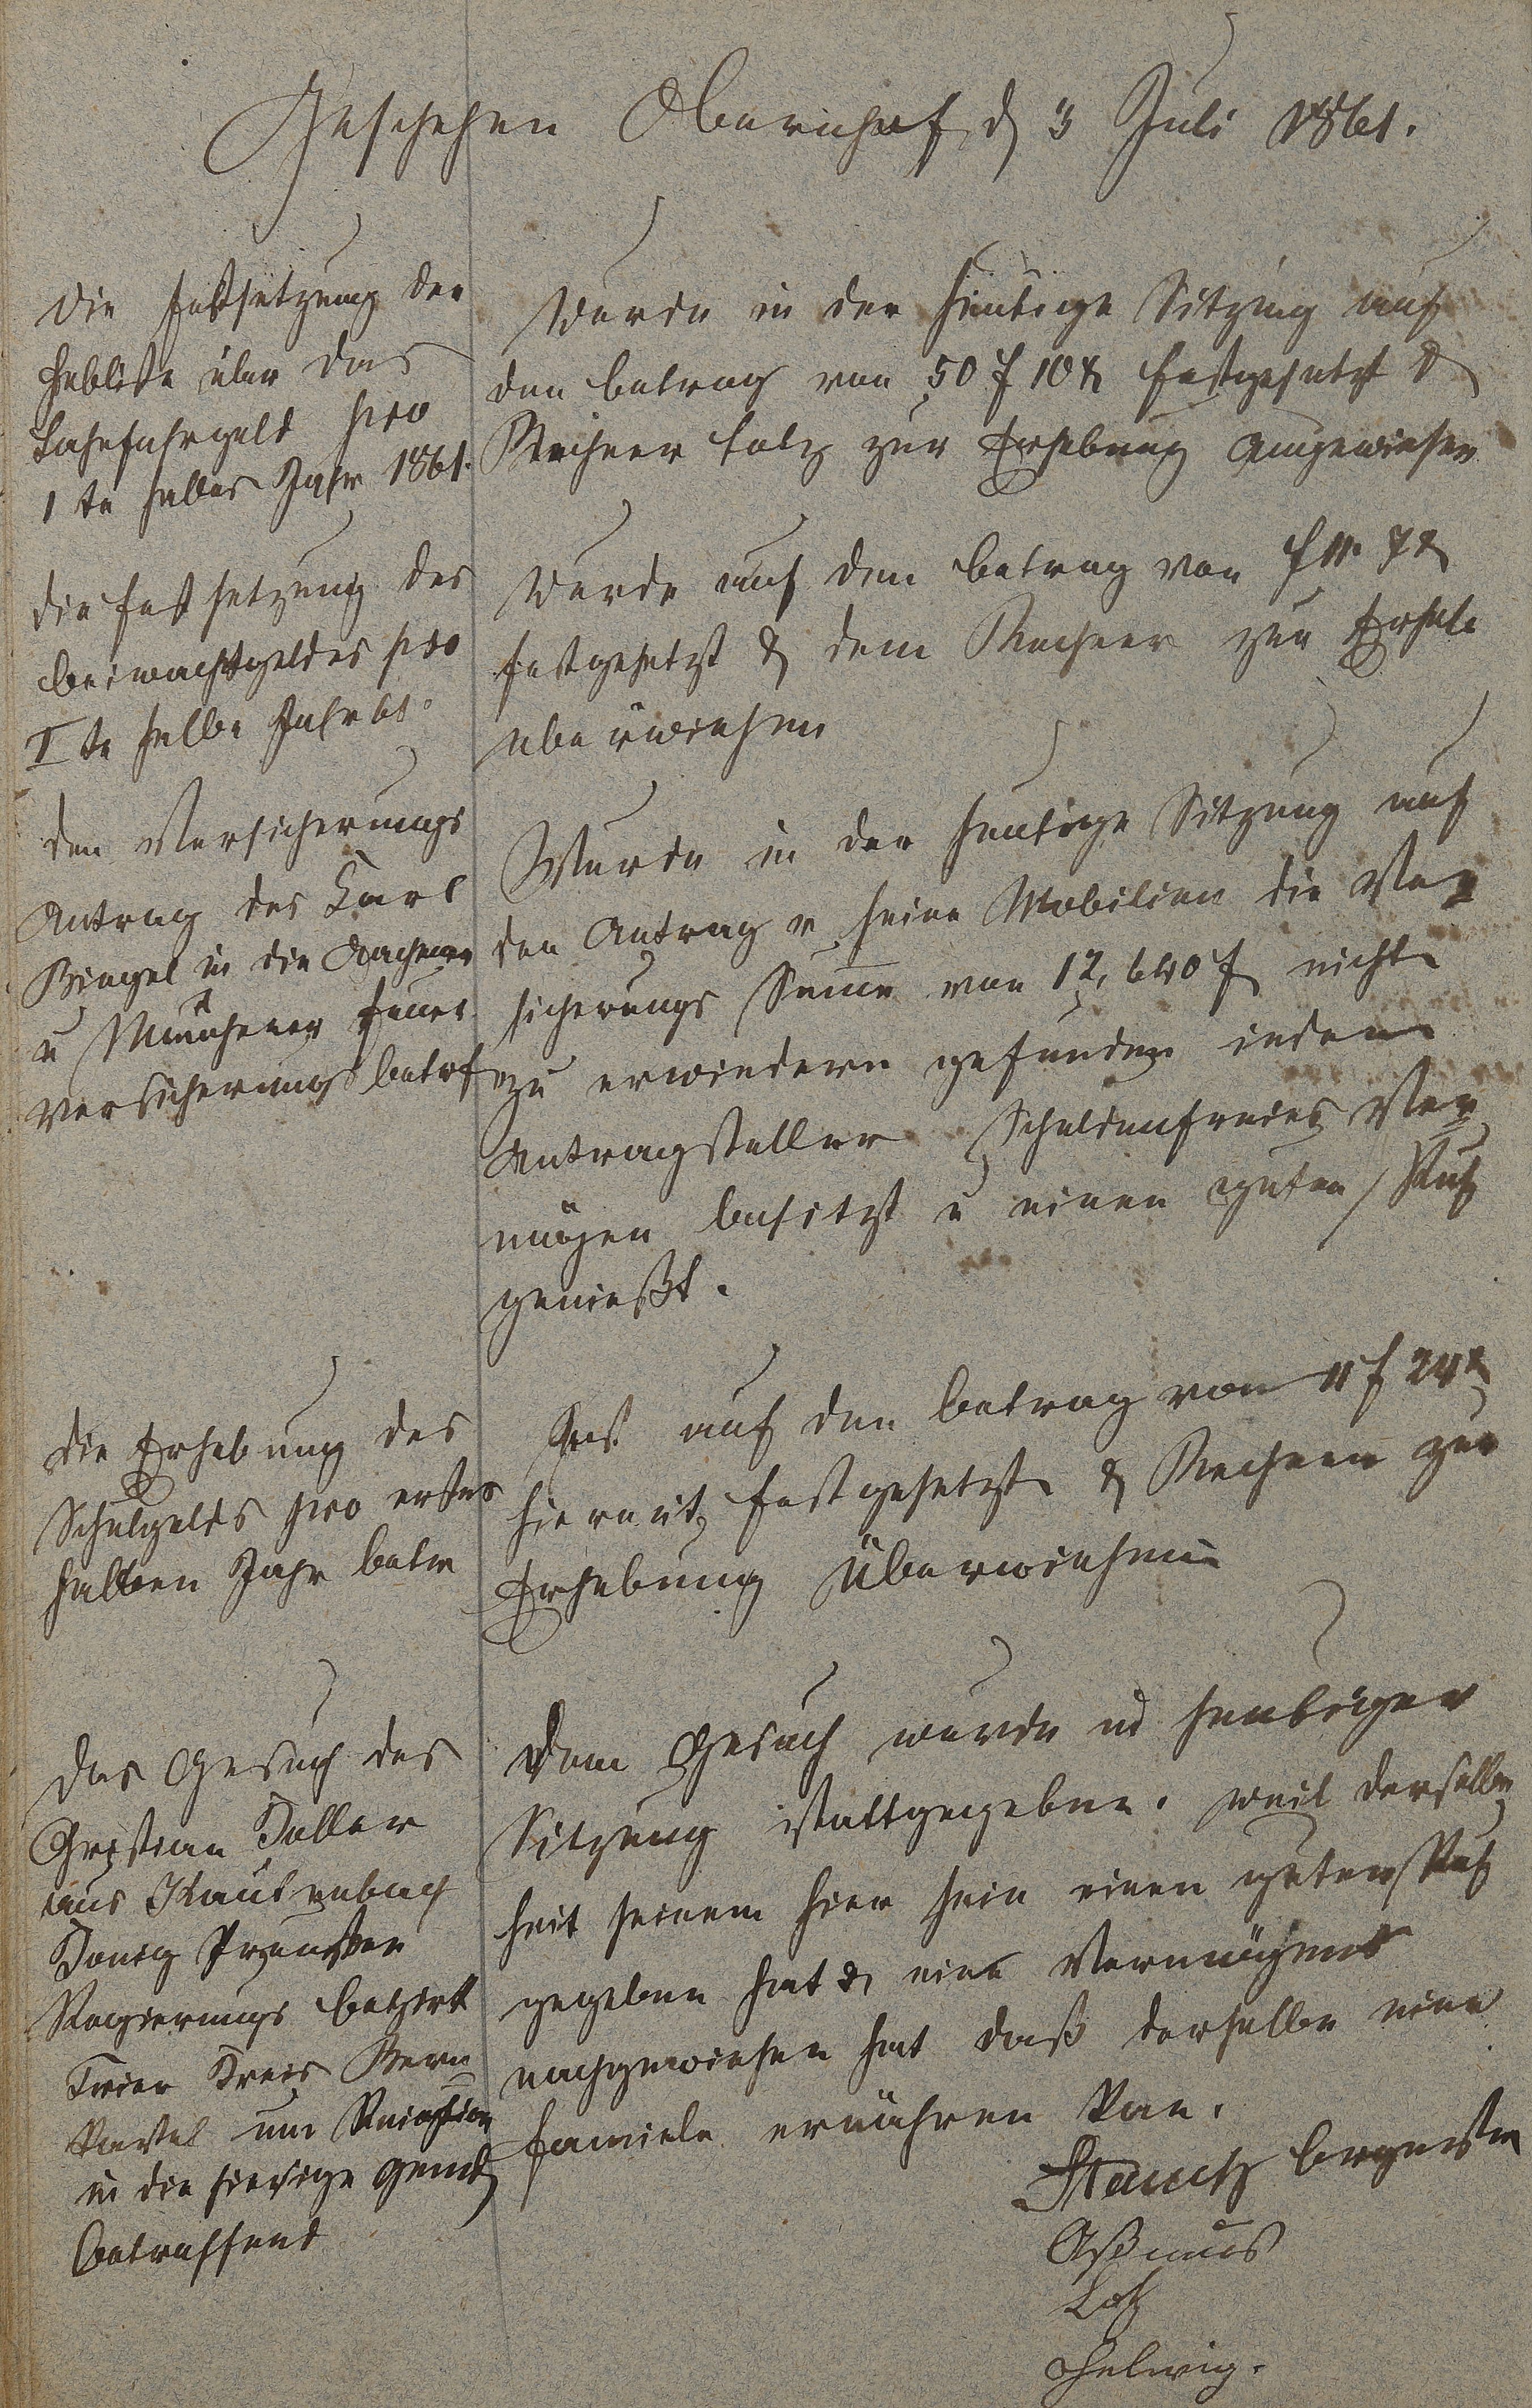 Geschehen Obernhof d 3 Juli 1861.
Die festsetzung der
Hebliste über das
Lahnfahrgeld pro
1 te halbes Jahr 1861.
Wurde in der heutige Sitzung auf
den betrag von 50 f 10 x festgesetzt &
Rechner Lotz zur Erhebung angewiesen
die festsetzung des
beiwachtgeldes pro
I te halbe Jahr 61.
Wurde auf dem betrag von f 7 x
festgesetzt & dem Rechner zur Erhebe
uberwiesen
den Versicherungs
Antrag des Karl
Bingel in die Aachener
u Münchener feuer
versicherungs betrf
Wurde in der heutige Sitzung auf
den Antrag u seine Mobilien die Ver
sicherungs Sume von 12,640 f nichts
zu erwiedern gefunden indem
Antragsteller Schuldenfreies Ver
mögen besitzt u einen guten Ruf
genießt.
die Erhebung des
Schulgelds pro erstes
halben Jahr betr
Ist auf den betrag von 11 f 24 x
hiermit festgesetzt & Rechner zur
Erhebung Überwiesen
Das Gesuch des
Christian Daller
aus Kautenbach
Konig Preußen
Regierungs bezirk
Trier Kreis Bern
kastel um Reception
in die hiesige gemd
betreffend
Dem Gesuch wurde in heutiger
Sitzung stattgegeben. weil derselbe
seit seinem hier sein einen guten Ruf
gegeben hat & eine Vermögens
nachgewiesen hat daß derselbe eine
familie ernähren kan.
Stauch brgmstr
Aßmus
Lotz
Helwig.